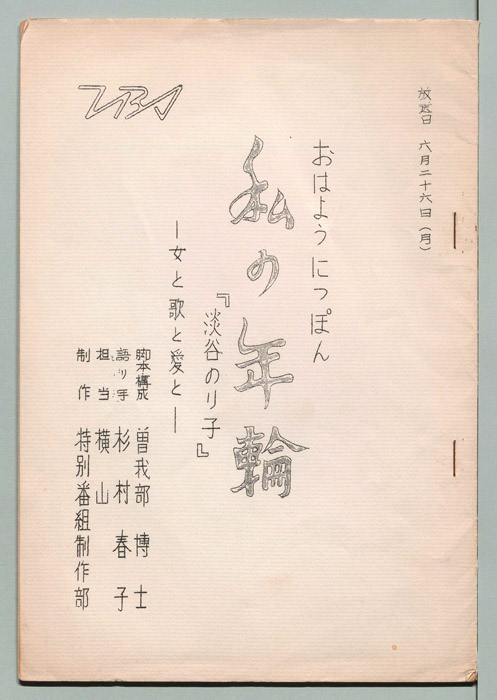 放送日 六月二十六日(月)
おはようにっぽん
私の年輪
『淡谷のり子』
―女と歌と愛と―
TBS
脚本構成 曽我部 博士
語り手 杉村 春子
担当 横山
制作 特別番組制作部